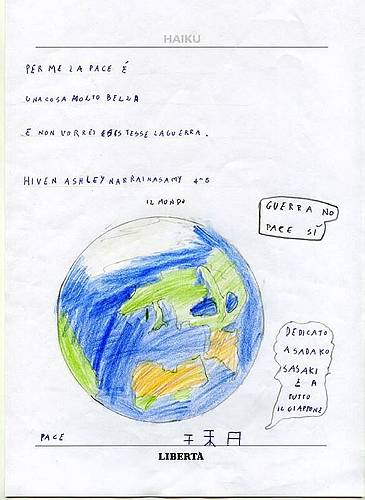 HAIKU
PER ME LA PACE É
UNA COSA MOLTO BELLA
E NON VORREI ESISTESSE LA GUERRA.
HIVEN ASHLEY NARRAINASAMY 4-B
IL MONDO
GUERRA NO
PACE SÌ
DEDICATO
A SADAKO
SASAKI
E A
TUTTO
IL GIAPPONE
PACE
LIBERTÀ